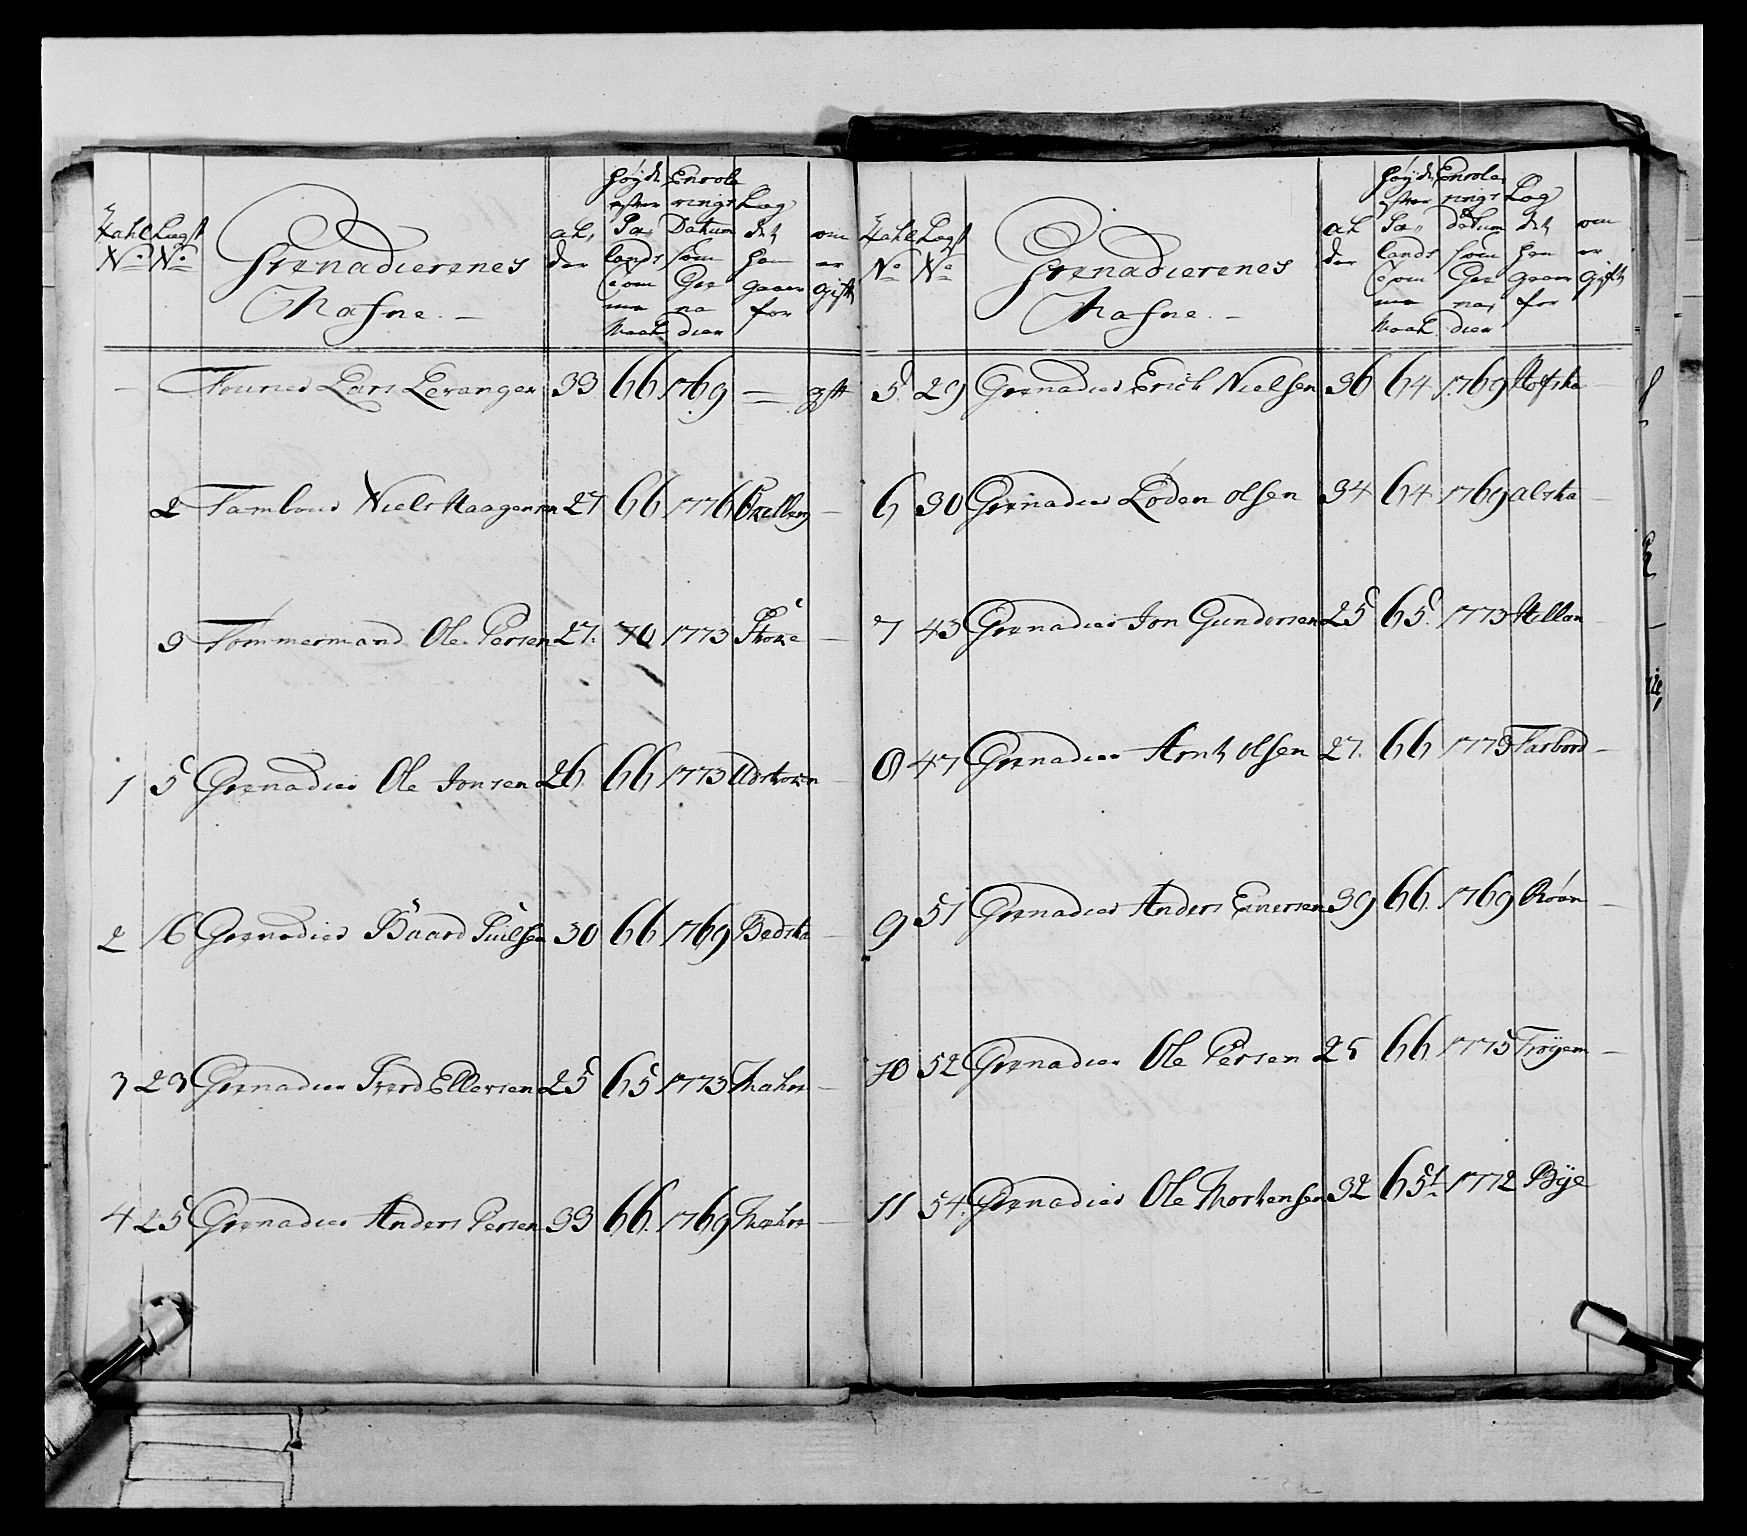 Zahl Lægst
No. No.
Grenadierenes
Nafne. —
al,
der
Høyde
efter
Sæ,
lands
Com
me
Maal
Enrole
rings
Datum
som
Gre
na
dier
Læg
det
han
gaaer
for
om
er
gift
— Fourier Lars Levanger 33 66 1769 = gift
2 Tambour Niels Haagensen 27 66 1776 —
3 Tømmermand Ole Persen 27. 70 1773 —
1 5 Grenadier Ole Jonsen 26 66 1773 —
2 16 Grenadier Baard 30 66 1769 —
3 23 Grenadier Ellevsen 25 65 1773 —
4 25 Grenadier Anders Persen 33 66. 1769 —
Zahl Lægst
No No
Grenadierenes
Nafne. —
al
der
Høyde
efter
Sæ,
lands
Com
me
Maal
Enrole,
rings
datum
som
Gre
na,
dier
Læg
det
han
gaaer
for
om
er
gift
5 29 Grenadier Erich Nielsen 36 64 1769 —
6 30 Grenadier Loden Olsen 34 64 1769 —
7 43 Grenadier Jon Gundersen 25 65. 1773 —
8 47 Grenadier Arnt Olsen 27. 66 1773 —
9 51 Grenadier Anders Einersen 39 66. 1769 —
10 52 Grenadier Ole Persen 25 66 1775 —
11 54. Grenadier Ole Mortensen 32 65 1772 Bÿe